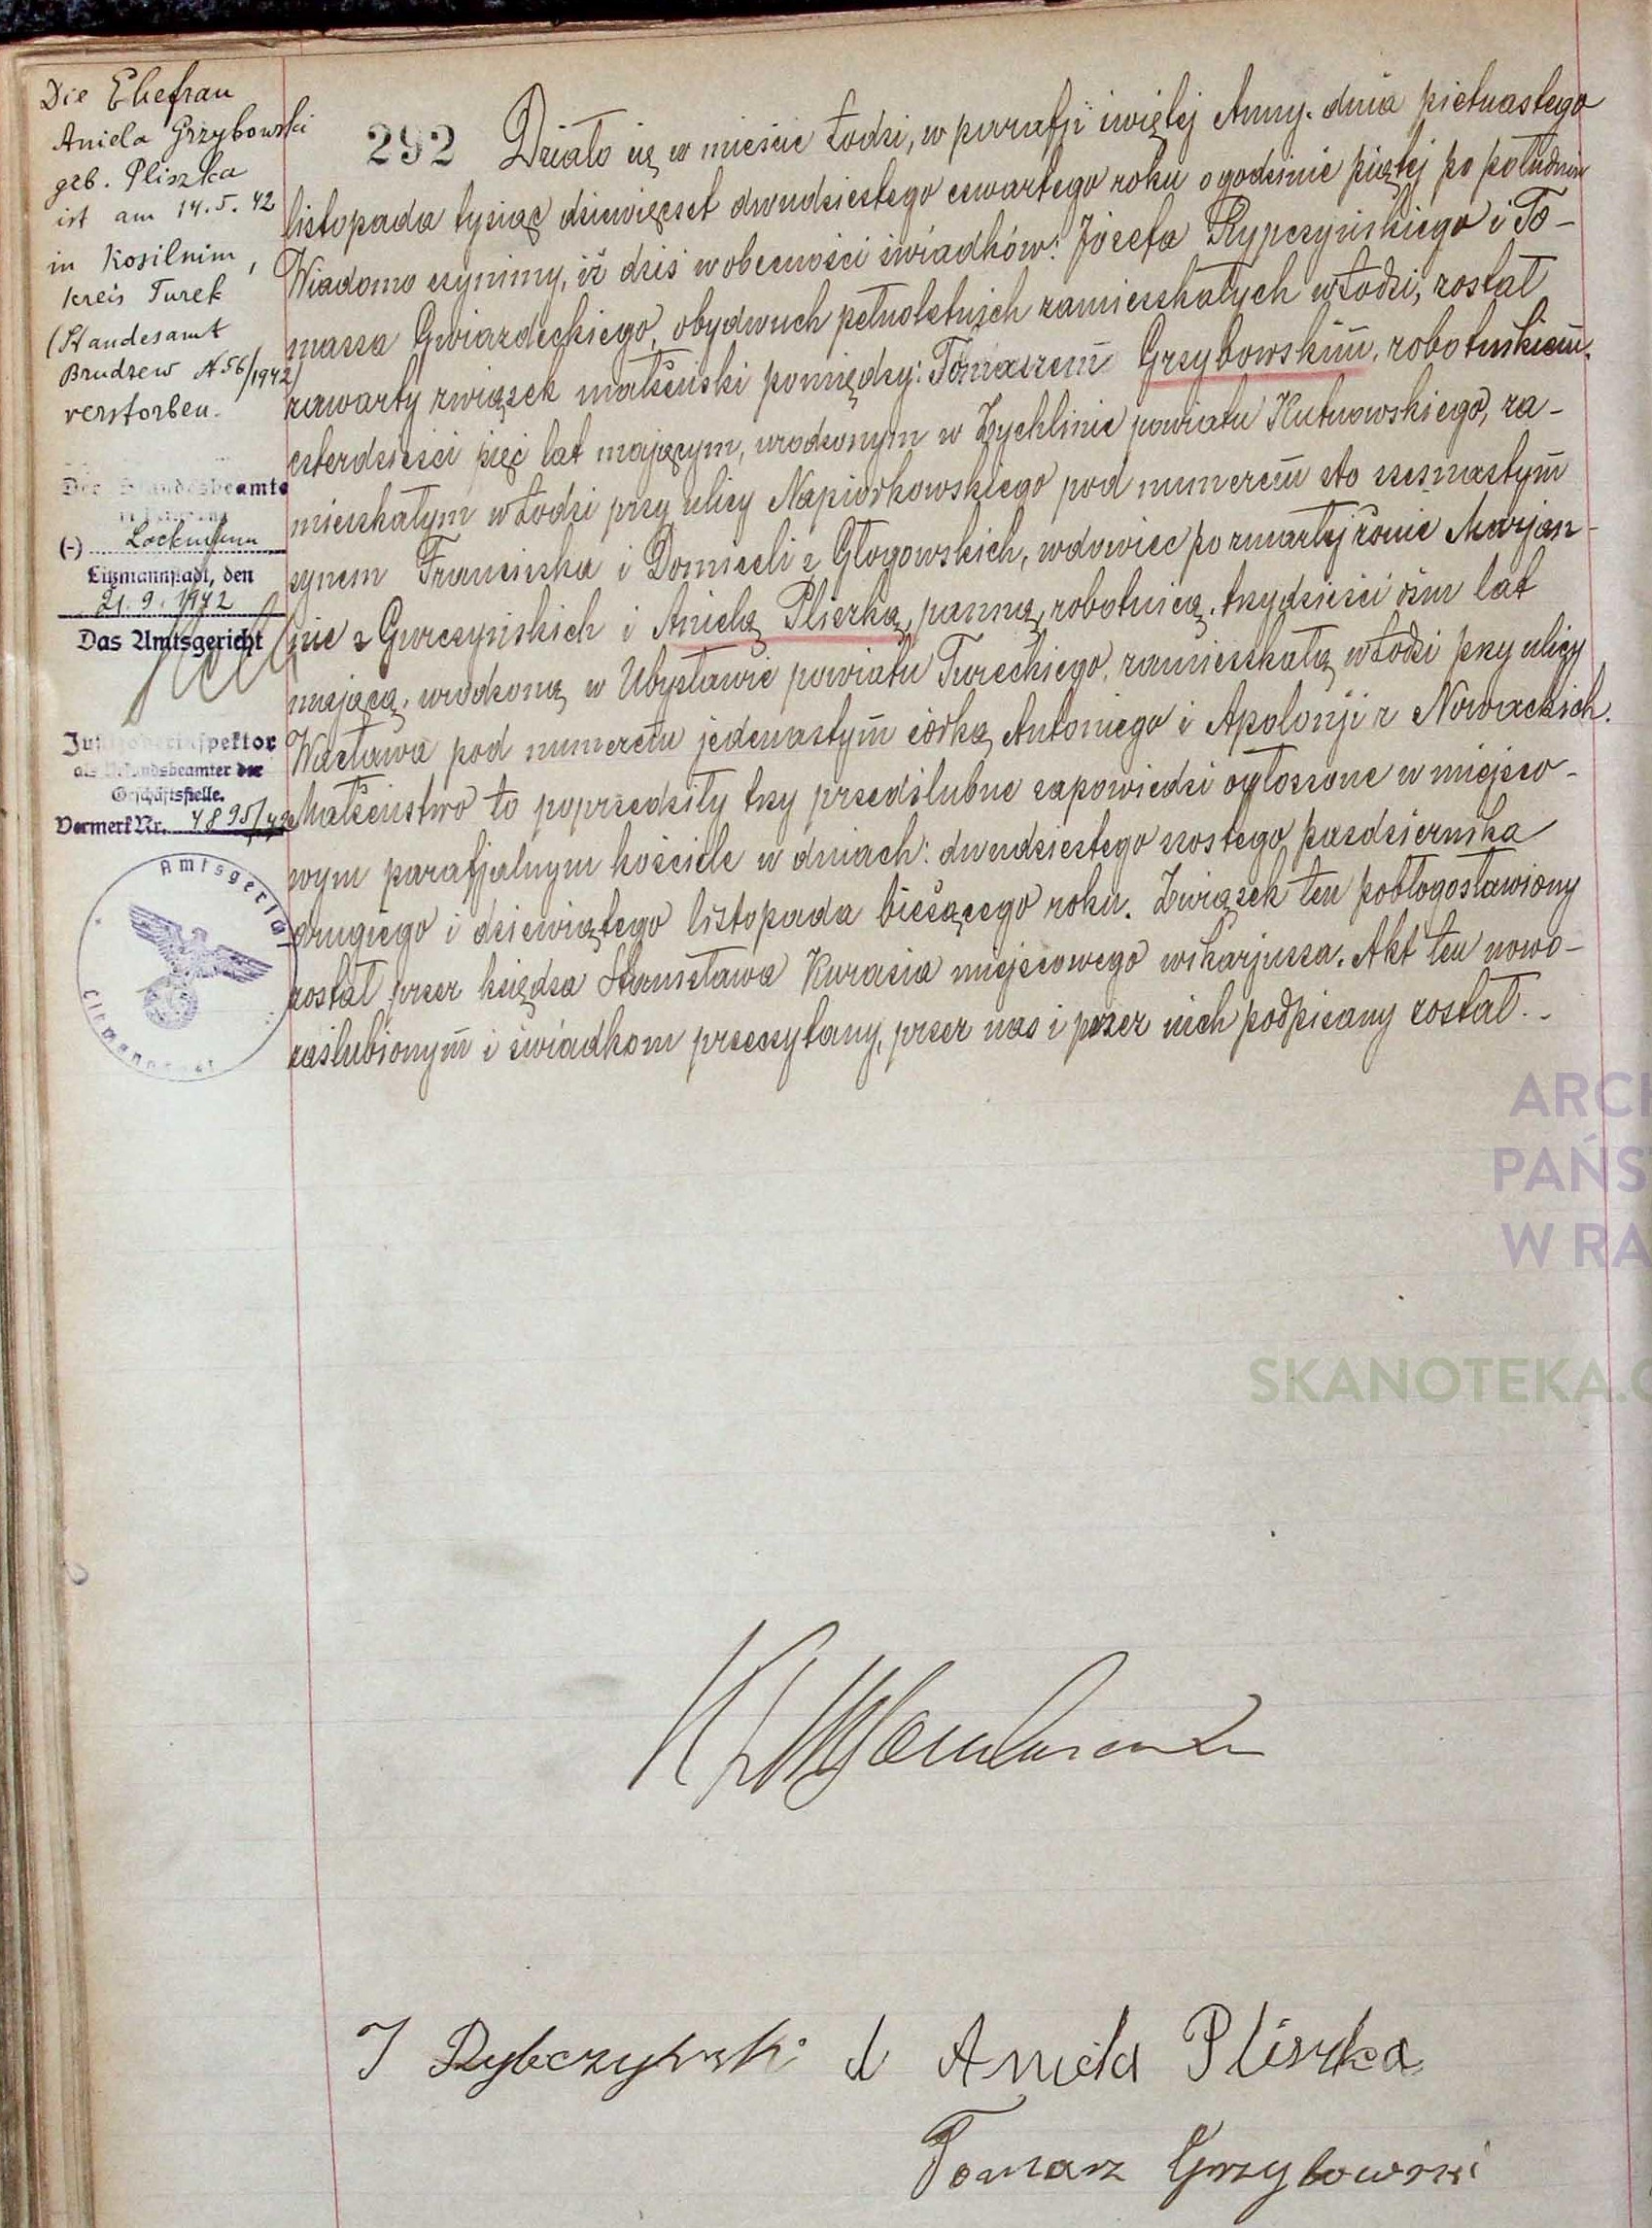 Die Ehefrau
Aniela Grzybowski
geb. Pliszka
ist am 14.5.42
in Kosilnim,
Kreis Turek
(Standesamt
Brudzew N 56/1942)
verstorben.
Der Standesbeamte
(-) Lockmann
Litzmannstadt, den
21.9.1942
Das Amtsgericht
Justizoberinspektor
als Urkundsbeamter der
Geschäftsstelle.
Vermerk Nr. 4895/42
Amtsgericht
Litzmannstadt
292 Działo się w mieście Łodzi, w parafji świętej Anny. dnia piętnastego
listopada tysiąc dziewięcset dwudziestego czwartego roku o godzinie piątej po południu
Wiadomo czynimy, iż dziś w obecności świadków: Józefa Rypczyńskiego i To-
masza Gwiazdeckiego, obydwuch pełnoletnich zamieszkałych w Łodzi, został
zawarty związek małżeński pomiędzy: Tomaszem Grzybowskim, robotnikiem,
czterdzieści pięć lat mającym, urodzonym w Żychlinie powiatu Kutnowskiego, za-
mieszkałym w Łodzi przy ulicy Napiórkowskiego pod numerem sto szesnastym
synem Franciszka i Domiceli z Głogowskich, wdowiec po zmarłej żonie Marjan-
nie z Gurczyńskich i Anielą Pliszką, panną, robotnicą, trzydzieści ośm lat
mającą, urodzoną w Ubysławie powiatu Tureckiego, zamieszkałą w Łodzi przy ulicy
Wacława pod numerem jedenastym córką Antoniego i Apolonji z Nowackich.
Małżeństwo to poprzedziły trzy przedślubne zapowiedzi ogłoszone w miejsco-
wym parafjalnym kościele w dniach: dwudziestego szostego pazdziernika
drugiego i dziewiątego listopada bieżącego roku. Związek ten pobłogosławiony
został przez księdza Stanisława Kurasia miejscowego wikarjusza. Akt ten nowo-
zaślubionym i świadkom przeczytany, przez nas i przez nich podpisany został.-
J Rybczyński
Aniela Pliszka
Tomasz Grzybowski
ARCH
PAŃS
W RA
SKANOTEKA.